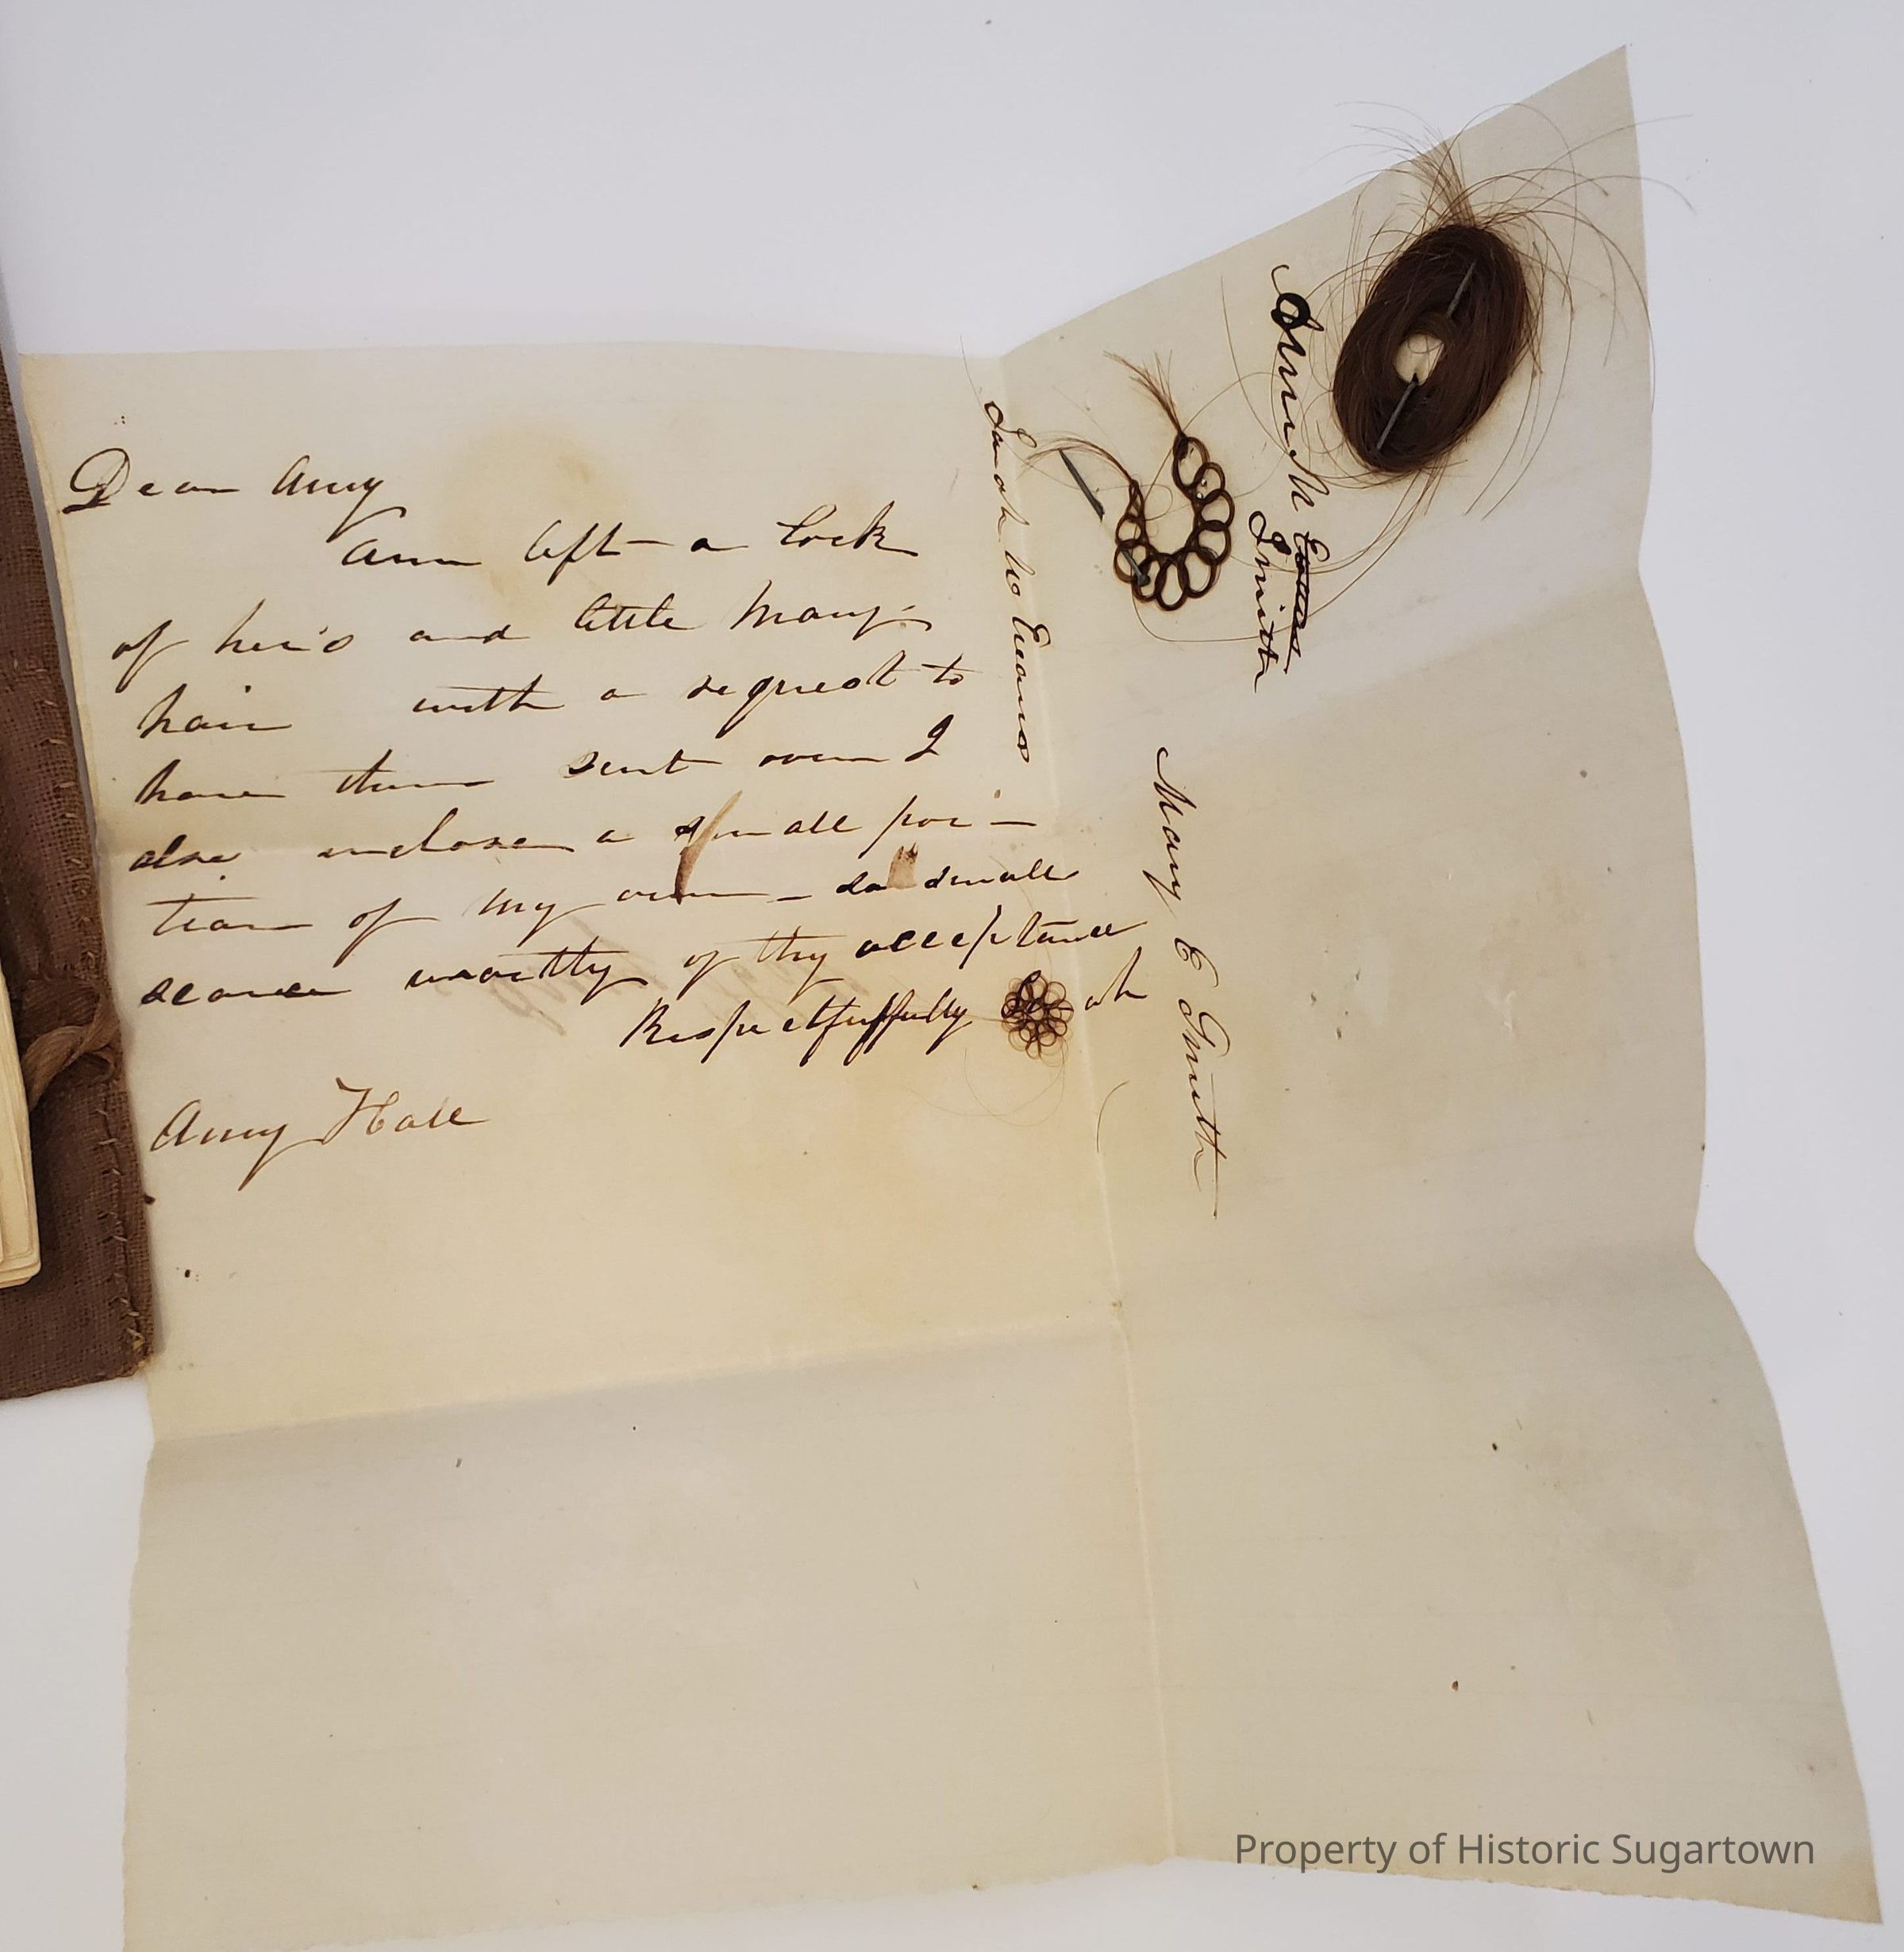 Dear Amy
Ann left a lock
of her's and little Mary's
hair with a request to
have them sent over I
also inclose a small por-
tion of my own - so small
scarce worthy of thy acceptance
Respectfuffully Sarah
Amy Hall
Sarah W Evans
Ann M Evans
Smith
Mary E Smith
Property of Historic Sugartown